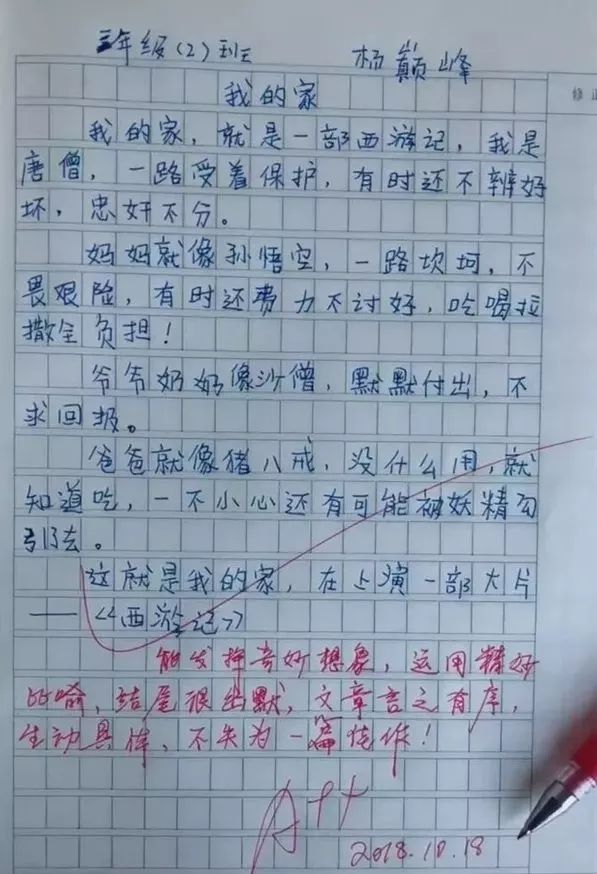 三年级(2)班 杨巅峰
修正
我的家
我的家,就是一部西游记,我是
唐僧,一路受着保护,有时还不辨好
坏,忠奸不分。
妈妈就像孙悟空,一路坎坷,不
畏艰险,有时还费力不讨好,吃喝拉
撒全负担!
爷爷奶奶像沙僧,默默付出,不
求回报。
爸爸就像猪八戒,没什么用,就
知道吃,一不小心还有可能被妖精勾
引去。
这就是我的家,在上演一部大片
——《西游记》
能发挥奇妙想象,运用精妙
比喻,结尾很幽默,文章言之有序,
生动具体,不失为一篇佳作!
A++
2018.10.18